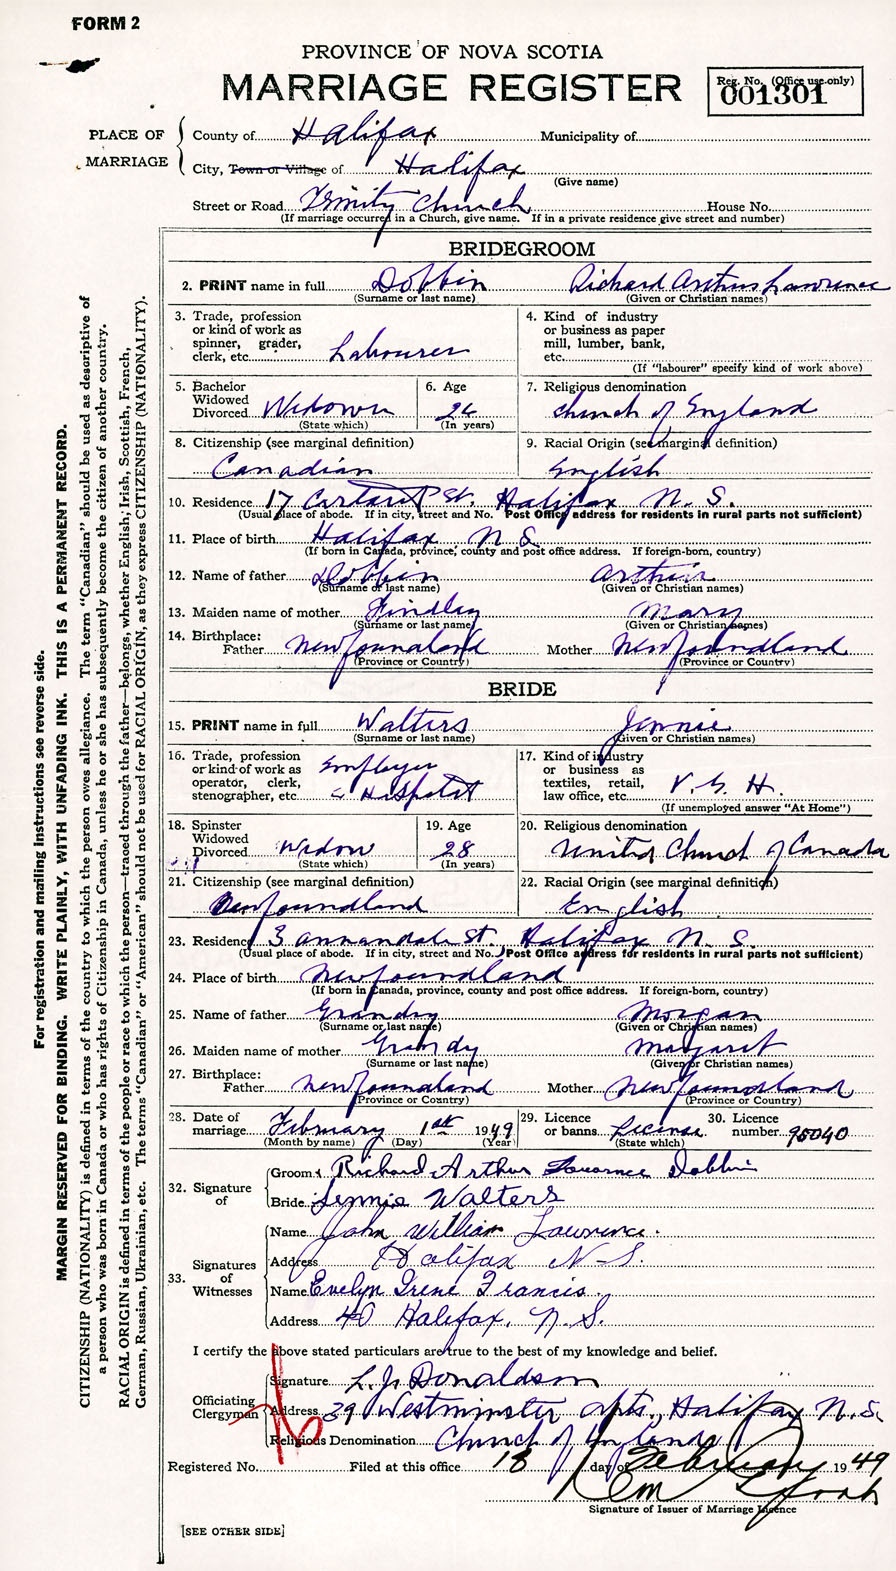 FORM 2
PROVINCE OF NOVA SCOTIA
MARRIAGE REGISTER
Reg. No. (Office use only)
001301
PLACE OF MARRIAGE
County of Halifax Municipality of
City, Town or Village of Halifax
(Give name)
Street or Road Trinity Church House No.
(If marriage occurred in a Church, give name. If in a private residence give street and number)
BRIDEGROOM
2. PRINT name in full Dobbin Richard Arthur Lawrence
(Surname or last name) (Given or Christian names)
3. Trade, profession or kind of work as spinner, grader, clerk, etc. Labourer
4. Kind of industry or business as paper mill, lumber, bank, etc.
(If "labourer" specify kind of work above)
5. Bachelor Widowed Divorced Widower
(State which)
6. Age 26
(In years)
7. Religious denomination
Church of England
8. Citizenship (see marginal definition)
Canadian
9. Racial Origin (see marginal definition)
English
10. Residence 17 St. Halifax N. S.
(Usual place of abode. If in city, street and No. Post Office address for residents in rural parts not sufficient)
11. Place of birth Halifax N S
(If born in Canada, province, county and post office address. If foreign-born, country)
12. Name of father Dobbin Arthur
(Surname or last name) (Given or Christian names)
13. Maiden name of mother Findley Mary
(Surname or last name) (Given or Christian names)
14. Birthplace:
Father Newfoundland Mother Newfoundland
(Province or Country) (Province or Country)
BRIDE
15. PRINT name in full Walters Jennie
(Surname or last name) (Given or Christian names)
16. Trade, profession or kind of work as operator, clerk, stenographer, etc.
17. Kind of industry or business as textiles, retail, law office, etc. V. G. H.
(If unemployed answer "At Home")
18. Spinster Widowed Divorced Widow
(State which)
19. Age 28
(In years)
20. Religious denomination
United Church of Canada
21. Citizenship (see marginal definition)
Newfoundland
22. Racial Origin (see marginal definition)
English
23. Residence 3 Annandale St. Halifax N. S.
(Usual place of abode. If in city, street and No. Post Office address for residents in rural parts not sufficient)
24. Place of birth Newfoundland
(If born in Canada, province, county and post office address. If foreign-born, country)
25. Name of father Grandy Morgan
(Surname or last name) (Given or Christian names)
26. Maiden name of mother Grandy Margaret
(Surname or last name) (Given or Christian names)
27. Birthplace:
Father Newfoundland Mother Newfoundland
(Province or Country) (Province or Country)
28. Date of marriage February 1st 1949
(Month by name) (Day) (Year)
29. Licence or banns License
(State which)
30. Licence number 95040
32. Signature of
Groom Richard Arthur Lawrence Dobbin
Bride Jennie Walters
33. Signatures of Witnesses
Name John William Lawrence
Address Halifax N-S.
Name Evelyn Irene Francis
Address 40 Halifax, N. S.
I certify the above stated particulars are true to the best of my knowledge and belief.
Officiating Clergyman
Signature L. J. Donaldson
Address 39 Westminster Apts., Halifax N. S.
Religious Denomination Church of England
Registered No. Filed at this office 18 day of February 1949
Signature of Issuer of Marriage Licence
[SEE OTHER SIDE]
For registration and mailing instructions see reverse side.
MARGIN RESERVED FOR BINDING. WRITE PLAINLY, WITH UNFADING INK. THIS IS A PERMANENT RECORD.
CITIZENSHIP (NATIONALITY) is defined in terms of the country to which the person owes allegiance. The term "Canadian" should be used as descriptive of
a person who was born in Canada or who has rights of Citizenship in Canada, unless he or she has subsequently become the citizen of another country.
RACIAL ORIGIN is defined in terms of the people or race to which the person—traced through the father—belongs, whether English, Irish, Scottish, French,
German, Russian, Ukrainian, etc. The terms "Canadian" or "American" should not be used for RACIAL ORIGIN, as they express CITIZENSHIP (NATIONALITY).